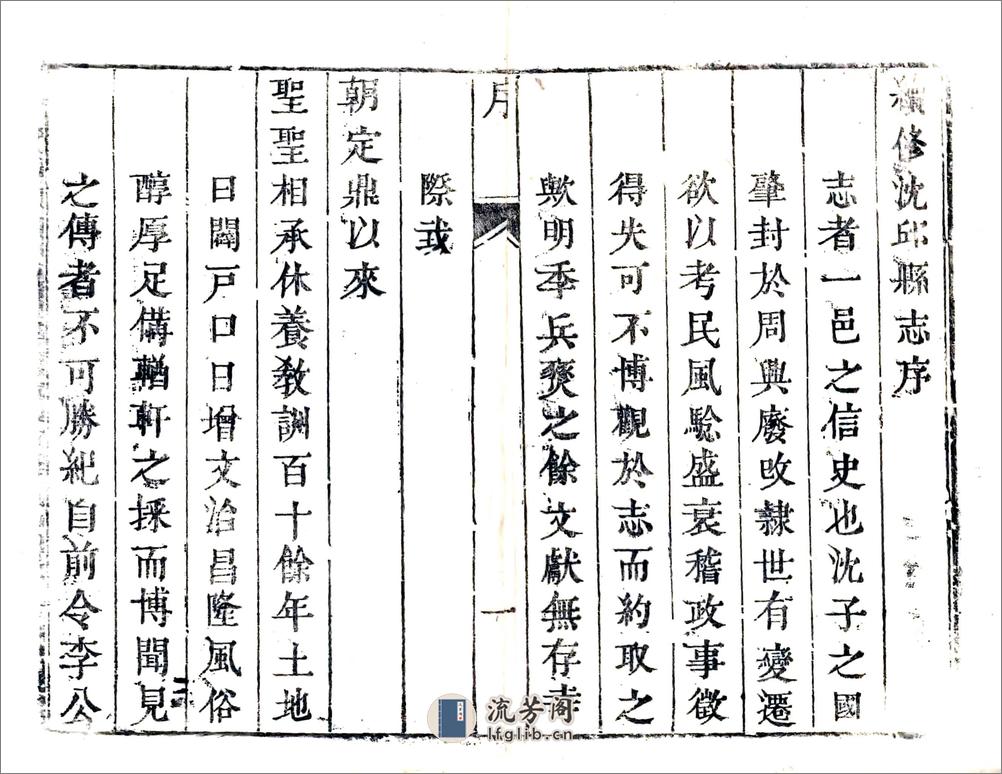 續修沈邱縣志序
志者一邑之信史也沈子之國
肇封於周興廢攺隸世有變遷
欲以考民風騐盛衰稽政事徵
得失可不博觀於志而約取之
歟明季兵燹之餘文獻無存幸
際我
序
一
朝定鼎以來
聖聖相承休養敎訓百十餘年土地
日闢戸口日增文治昌隆風俗
醇厚足備輶軒之採而博聞見
之傳者不可勝紀自前令李公
流芳阁
lfglib.cn